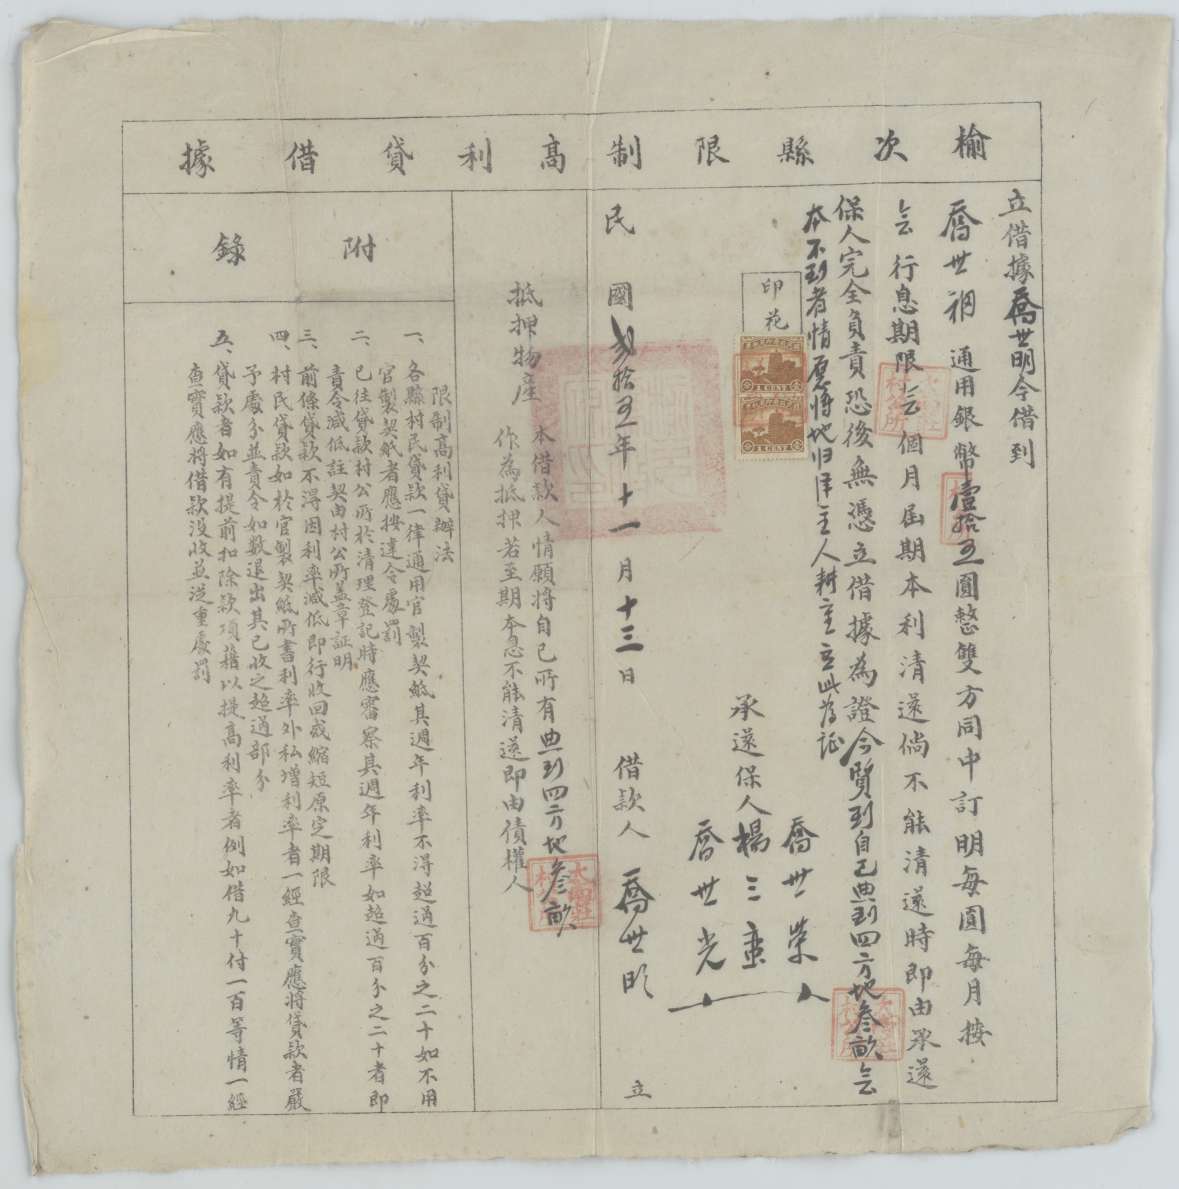 榆次縣限制高利貸借據
立借據喬世明今借到
喬世祠通用銀幣壹拾五圓整雙方同中訂明每圓每月按
行息期限 個月屆期本利清還倘不能清還時即由承還
保人完全負責恐後無憑立借據為證今質到自己典到四方地叁畝
本不到者情愿將地归 主人耕 立此为证
印花
1 CENT
1 CENT
承還保人
喬世榮
楊三
喬世光
民國貳拾五年十一月十三日 借款人 喬世明 立
抵押物產
本借款人情願將自己所有典到四方地叁畝
作為抵押若至期本息不能清還即由債權人
附錄
限制高利貸辦法
一、各縣村民貸款一律通用官製契紙其週年利率不得超過百分之二十如不用
官製契紙者應按違令處罰
二、已往貸款村公所於清理登記時應審察其週年利率如超過百分之二十者即
責令減低註契由村公所蓋章証明
三、前條貸款不得因利率減低即行收回或縮短原定期限
四、村民貸款如於官製契紙所書利率外私增利率者一經查實應將貸款者嚴
予處分並責令如數退出其已收之超過部分
五、貸款者如有提前扣除款項藉以提高利率者例如借九十付一百等情一經
查實應將借款沒收並從重處罰